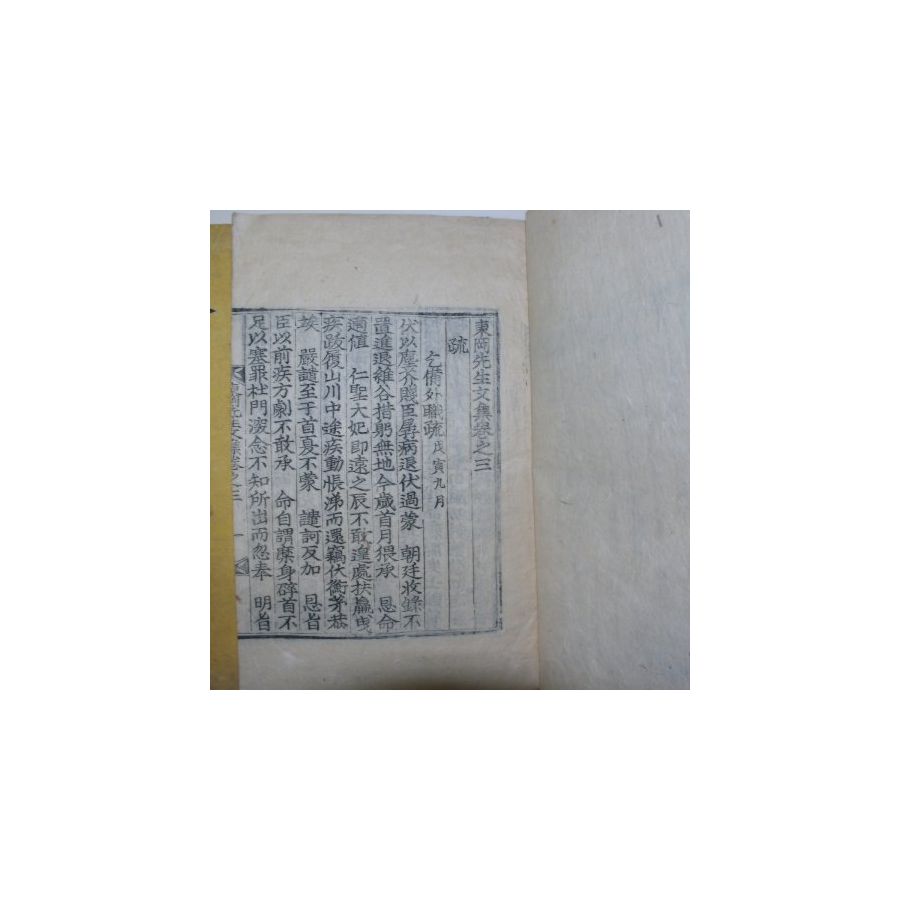 東岡先生文集卷之三
疏
乞備外職疏戊寅九月
伏以塵芥賤臣孱病退伏過蒙 朝廷收錄不
置進退維谷措躬無地今歲首月猥承 恩命
適值 仁聖大妃即遠之辰不敢遑處扶羸曳
疾跋履山川中途疾動悵涕而還竊伏衡茅恭
竢 嚴譴至于首夏不蒙 譴訶反加 恩旨
臣以前疾方劇不敢承 命自謂糜身碎首不
足以塞罪杜門深念不知所出而忽奉 明旨
文集卷之三 一